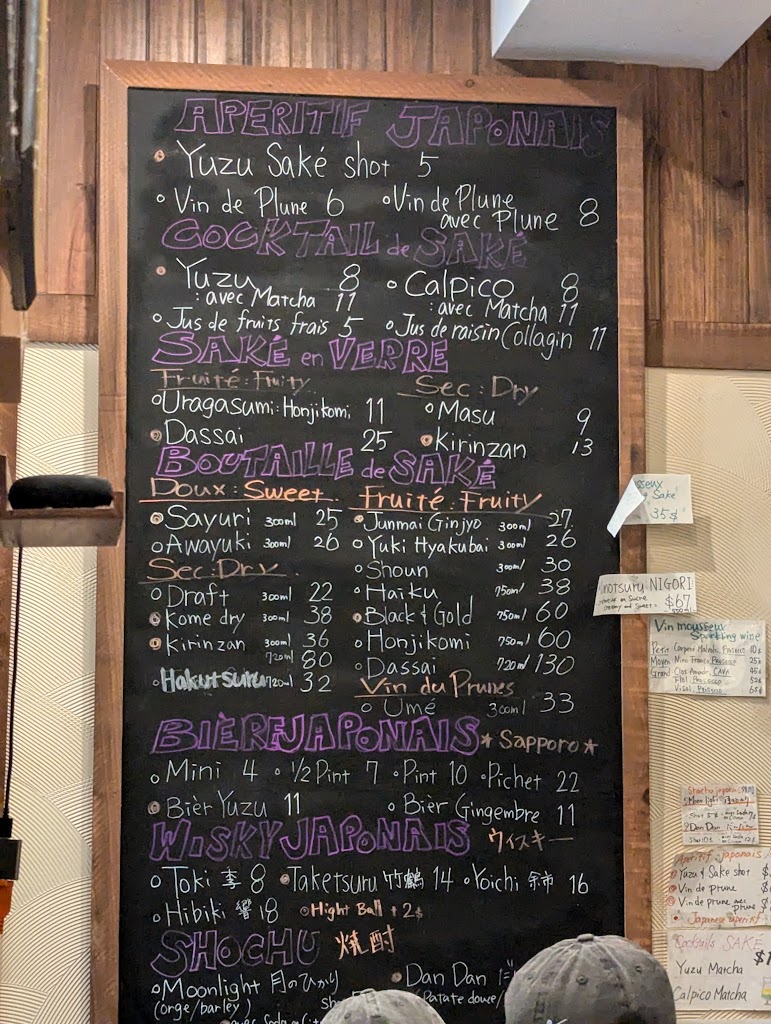 APERITIF JAPONAIS
Yuzu Saké shot 5
Vin de Plune 6 Vin de Plune
avec Plune 8
COCKTAIL de SAKÉ
Yuzu 8 Calpico 8
: avec Matcha 11 : avec Matcha 11
Jus de fruits frais 5 Jus de raisin Collagin 11
SAKÉ en VERRE
Fruité : Fruity Sec : Dry
Uragasumi : Honjikomi 11 Masu 9
Dassai 25 Kirinzan 13
BOUTAILLE de SAKÉ
Doux : Sweet Fruité : Fruity
Sayuri 300ml 25 Junmai Ginjyo 300ml 27
Awayuki 300ml 26 Yuki Hyakubai 300ml 26
Sec : Dry Shoun 300ml 30
Draft 300ml 22 Haiku 750ml 38
Kome dry 300ml 38 Black & Gold 750ml 60
Kirinzan 300ml 36 Honjikomi 750ml 60
720ml 80 Dassai 720ml 130
Hakutsuru 720ml 32 Vin du Prunes
Umé 300ml 33
BIÈRE JAPONAIS *Sapporo*
Mini 4 1/2 Pint 7 Pint 10 Pichet 22
Bièr Yuzu 11 Bièr Gingembre 11
WISKY JAPONAIS ウィスキー
Toki 季 8 Taketsuru 竹鶴 14 Yoichi 余市 16
Hibiki 響 18 Hight Ball + 2$
SHOCHU 焼酎
Moonlight 月のひかり Dan Dan
(orge/barley) Patate douce/
avec Soda
35$
NIGORI
$67
Vin mousseux
Sparkling wine
Petit
Moyen
Grand
CAVA
Moon light
Dan Dan
Aperitif Japonais
Yuzu & Sake shot
Vin de prune
Vin de prune avec prune
Japanese aperitif
Cocktails SAKE
Yuzu Matcha
Calpico Matcha